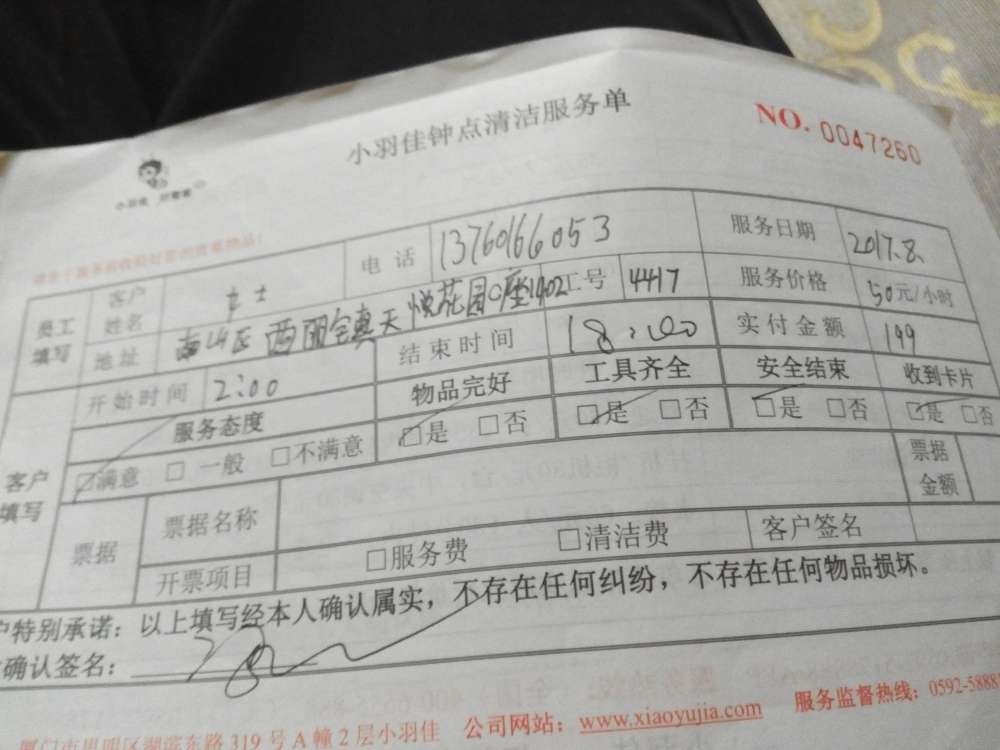 小羽佳钟点清洁服务单
NO. 0047260
小羽佳 好管家
员工填写 客户姓名 女士 电话 13760166053 服务日期 2017.8.
地址 南山区 天悦花园C座1902 工号 4417 服务价格 50元/小时
开始时间 2:00 结束时间 18:00 实付金额 199
客户填写 服务态度 物品完好 工具齐全 安全结束 收到卡片
☑满意 □一般 □不满意 ☑是 □否 ☑是 □否 ☑是 □否 ☑是 □否
票据 票据名称 票据金额
开票项目 □服务费 □清洁费 客户签名
户特别承诺：以上填写经本人确认属实，不存在任何纠纷，不存在任何物品损坏。
确认签名：
服务监督热线：0592-5888
厦门市思明区湖滨东路 319 号 A 幢 2 层小羽佳 公司网站：www.xiaoyujia.com